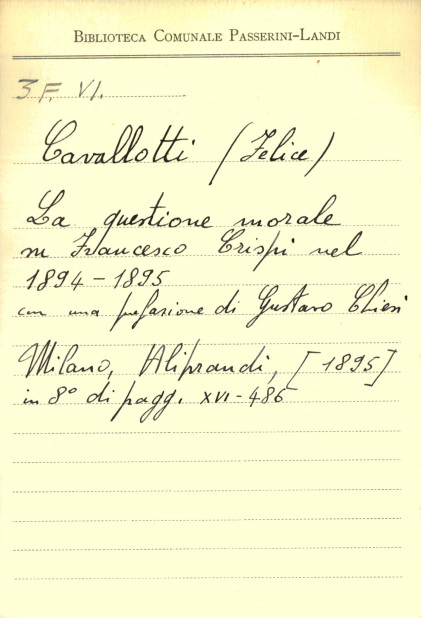 BIBLIOTECA COMUNALE PASSERINI-LANDI
3 F. VI.
Cavallotti (Felice)
La questione morale
su Francesco Crispi nel
1894-1895
con una prefazione di Gustavo Chiesi
Milano, Aliprandi, [1895]
in 8° di pagg. XVI-486